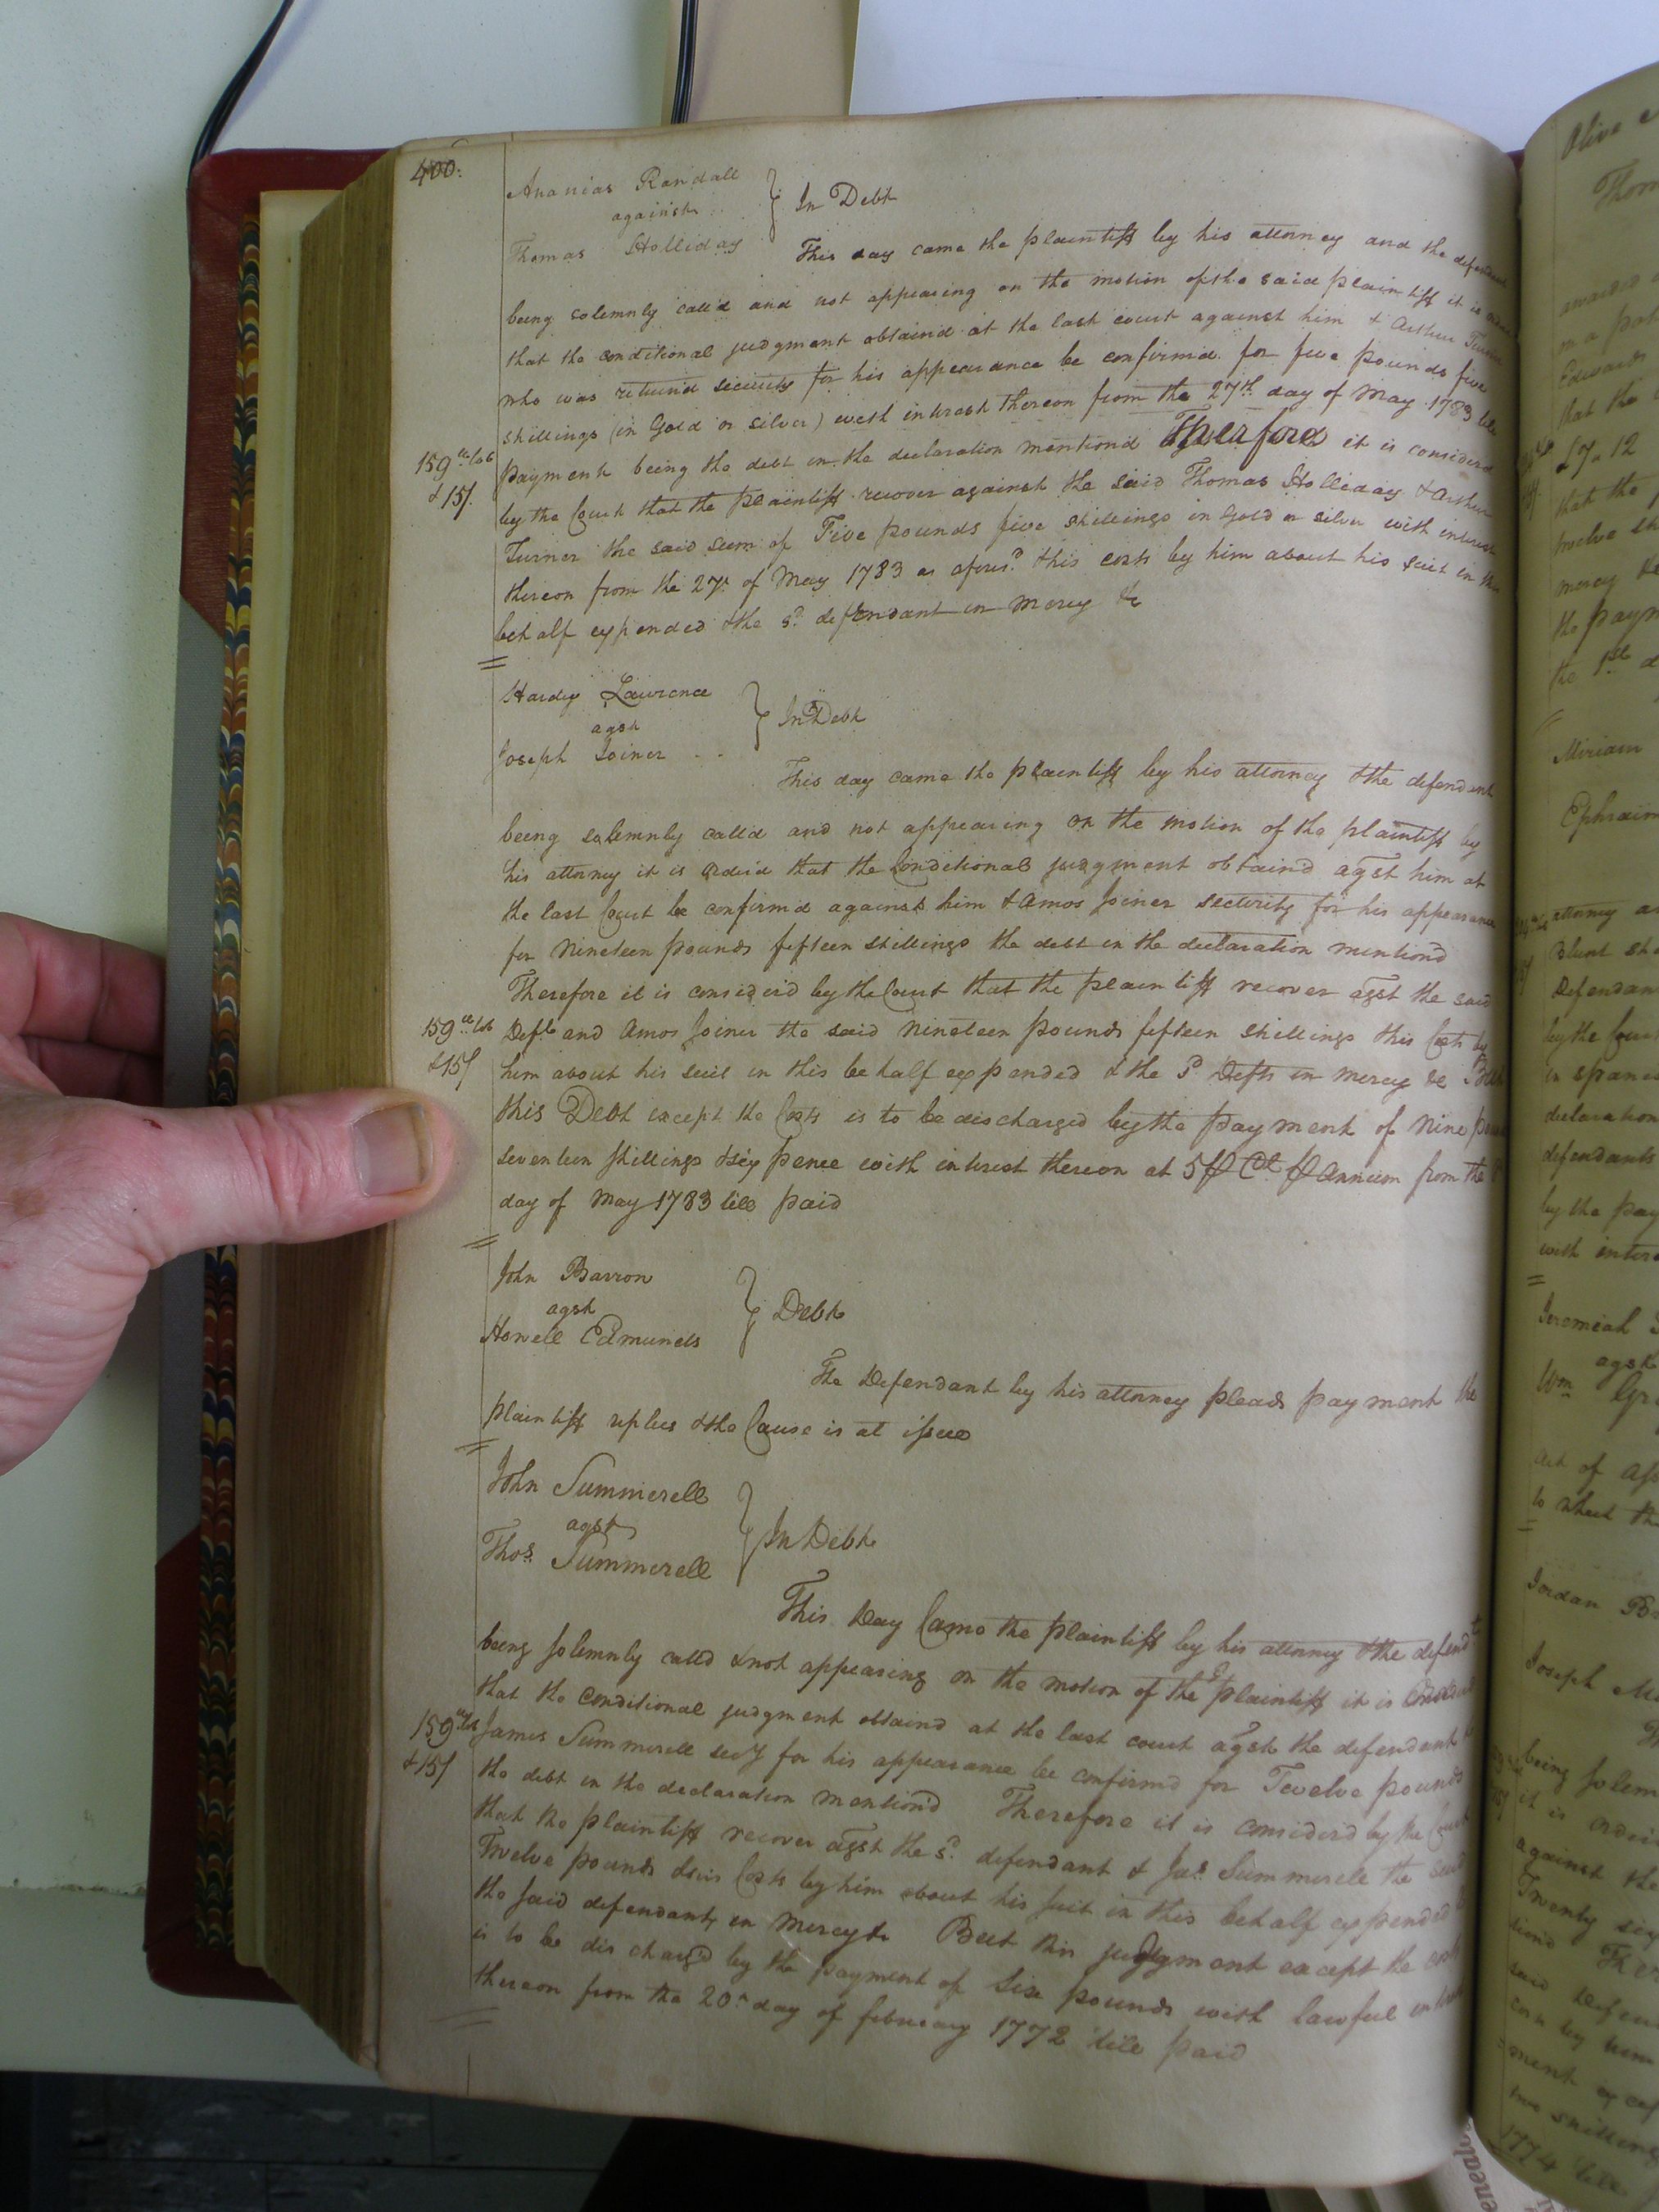 400.
Ananias Randall
against
Thomas Holliday
In Debt
This day came the plaintiff by his attorney and the defendant
being solemnly call'd and not appearing on the motion of the said plaintiff it is
that the conditional judgment obtaind at the last court against him & Arthur Turner
who was returnd security for his appearance be confirmd for five pounds five
shillings (in Gold or silver) with interest thereon from the 27th day of May 1783 till
payment being the debt in the declaration mentiond Therefore it is considerd
159 lb tob
& 15/.
by the Court that the plaintiff recover against the said Thomas Holliday & Arthur
Turner the said sum of Five pounds five shillings in Gold or silver with interest
thereon from the 27th of May 1783 as afores.d & his costs by him about his suit in this
behalf expended & the s.d defendant in mercy &c
Hardy Lawrence
agst
Joseph Joiner
In Debt
This day came the plaintiff by his attorney & the defendant
being solemnly calld and not appearing on the motion of the plaintiff by
his attorney it is orderd that the Conditional judgment obtaind agst him at
the last Court be confirmd against him & Amos Joiner security for his appearance
for Nineteen pounds fifteen shillings the debt in the declaration mentiond
Therefore it is considerd by the Court that the plaintiff recover agst the said
159 lb tob
& 15/
Deft and Amos Joiner the said Nineteen pounds fifteen shillings & his Costs by
him about his suit in this behalf expended & the s.d Defts in mercy &c But
this Debt except the Costs is to be discharged by the payment of Nine pounds
seventeen shillings & six pence with interest thereon at 5 ₱ Ct. ₱ Annum from the
day of May 1783 till paid
John Barron
agst
Howell Edmunds
Debt
The Defendant by his attorney pleads payment the
plaintiff replies & the Cause is at issue
John Summerell
agst
Thos. Summerell
In Debt
This Day Came the plaintiff by his attorney & the defendt
being solemnly calld & not appearing on the motion of the plaintiff it is
that the conditional judgment obtaind at the last court agst the defendant &
159 lb tob
& 15/
James Summerell secy for his appearance be confirmd for Twelve pounds
the debt in the declaration mention'd Therefore it is considerd by the Court
that the plaintiff recover agst the s.d defendant & Jas. Summerell the said
Twelve pounds & his Costs by him about his suit in this behalf expended &
the said defendants in mercy &c But this judgment except the costs
is to be dischargd by the payment of Six pounds with lawful interest
thereon from the 20th day of february 1772 till paid